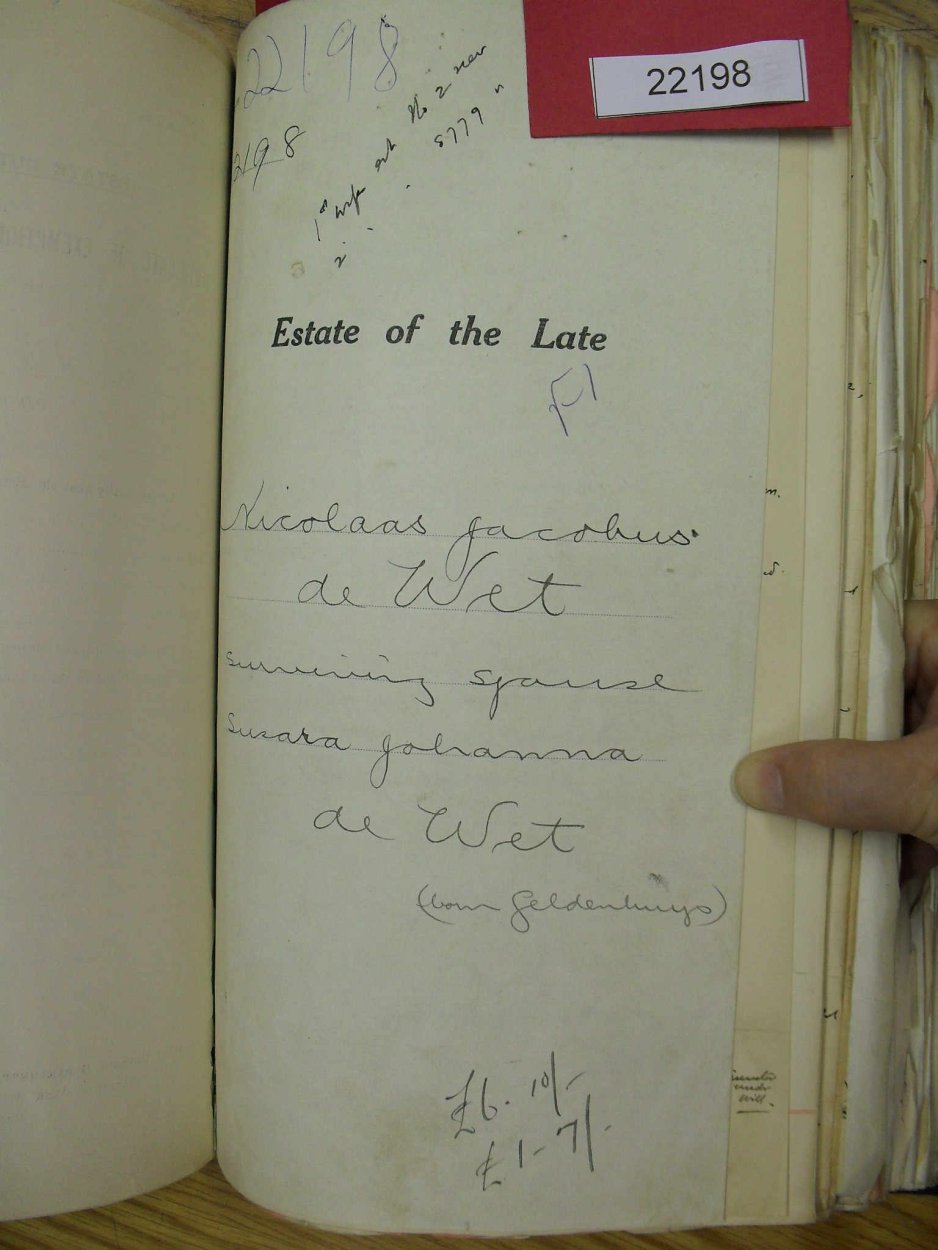 22198
22198
2198
1st wife est No 2 new
2 5779 "
Estate of the Late
Nicolaas Jacobus
de Wet
surviving spouse
Susara Johanna
de Wet
(born Geldenhuys)
£6. 10/-
£1-7/-
under
Will.